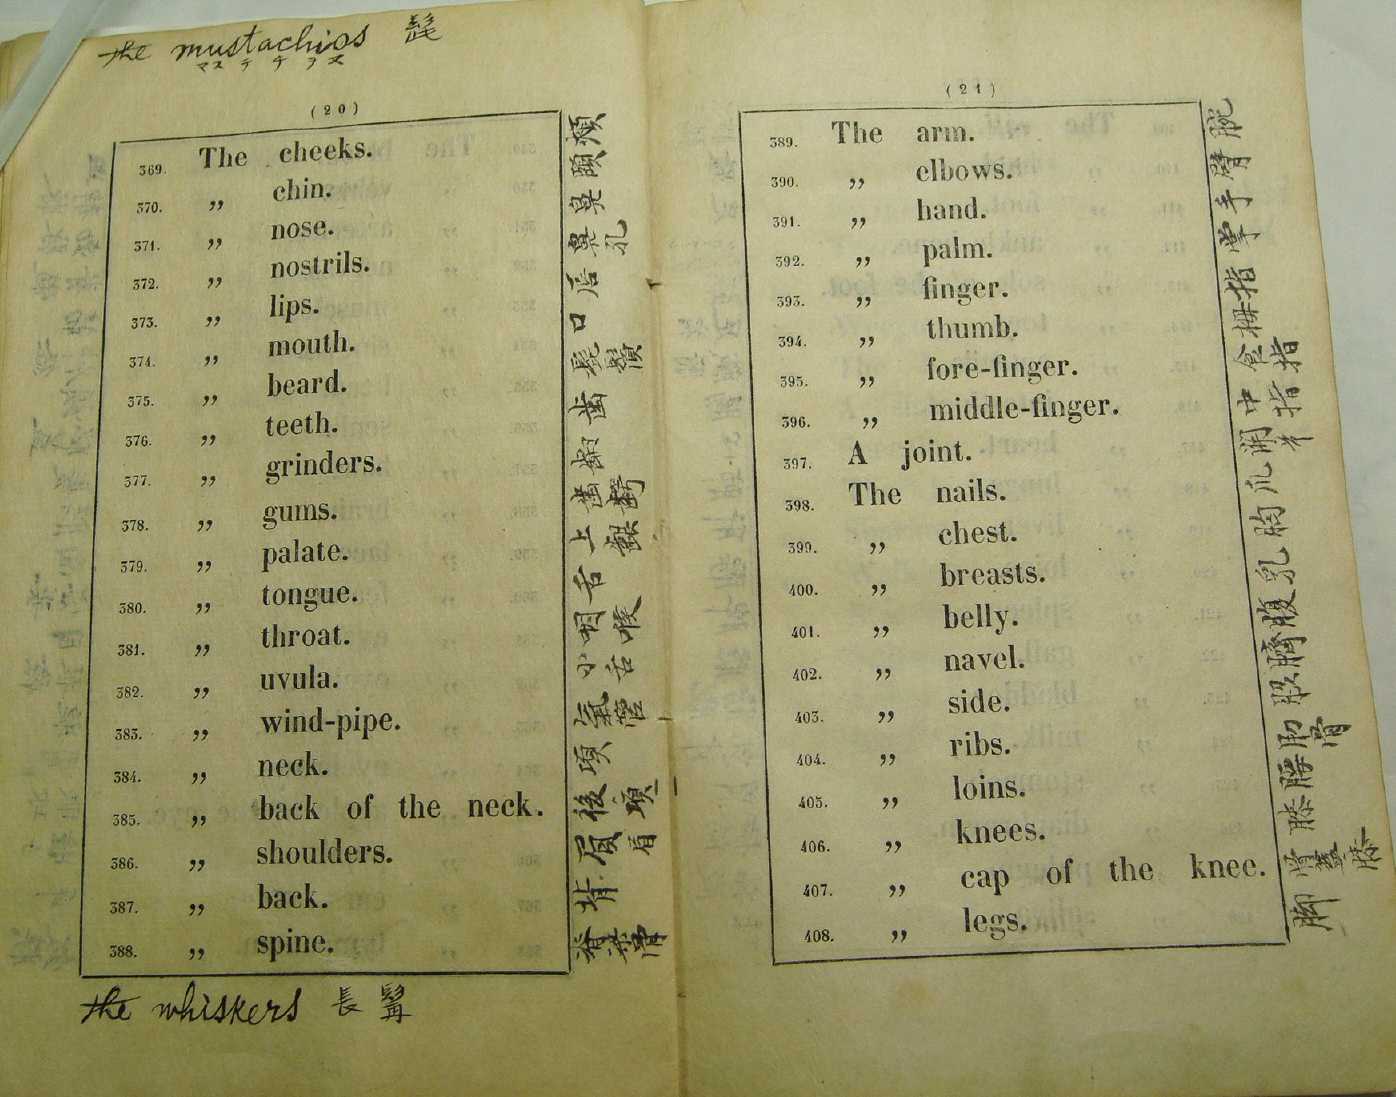 the mustachios 髭
マステチヲス
(20)
369. The cheeks. 頬
370. „ chin. 頤
371. „ nose. 鼻
372. „ nostrils. 鼻孔
373. „ lips. 唇
374. „ mouth. 口
375. „ beard. 髭鬚
376. „ teeth. 歯
377. „ grinders.
378. „ gums. 歯齶
379. „ palate. 上
380. „ tongue. 舌
381. „ throat. 咽喉
382. „ uvula. 小舌
383. „ wind-pipe. 氣管
384. „ neck. 項
385. „ back of the neck. 後項
386. „ shoulders. 肩
387. „ back. 背
388. „ spine. 脊梁骨
the whiskers 長髯
(21)
389. The arm. 腕
390. „ elbows. 臂
391. „ hand. 手
392. „ palm. 掌
393. „ finger. 指
394. „ thumb. 拇
395. „ fore-finger. 食指
396. „ middle-finger. 中指
397. A joint.
398. The nails. 爪
399. „ chest. 胸
400. „ breasts. 乳
401. „ belly. 腹
402. „ navel. 臍
403. „ side.
404. „ ribs. 肋骨
405. „ loins. 腰
406. „ knees. 膝
407. „ cap of the knee. 膝
408. „ legs. 脚